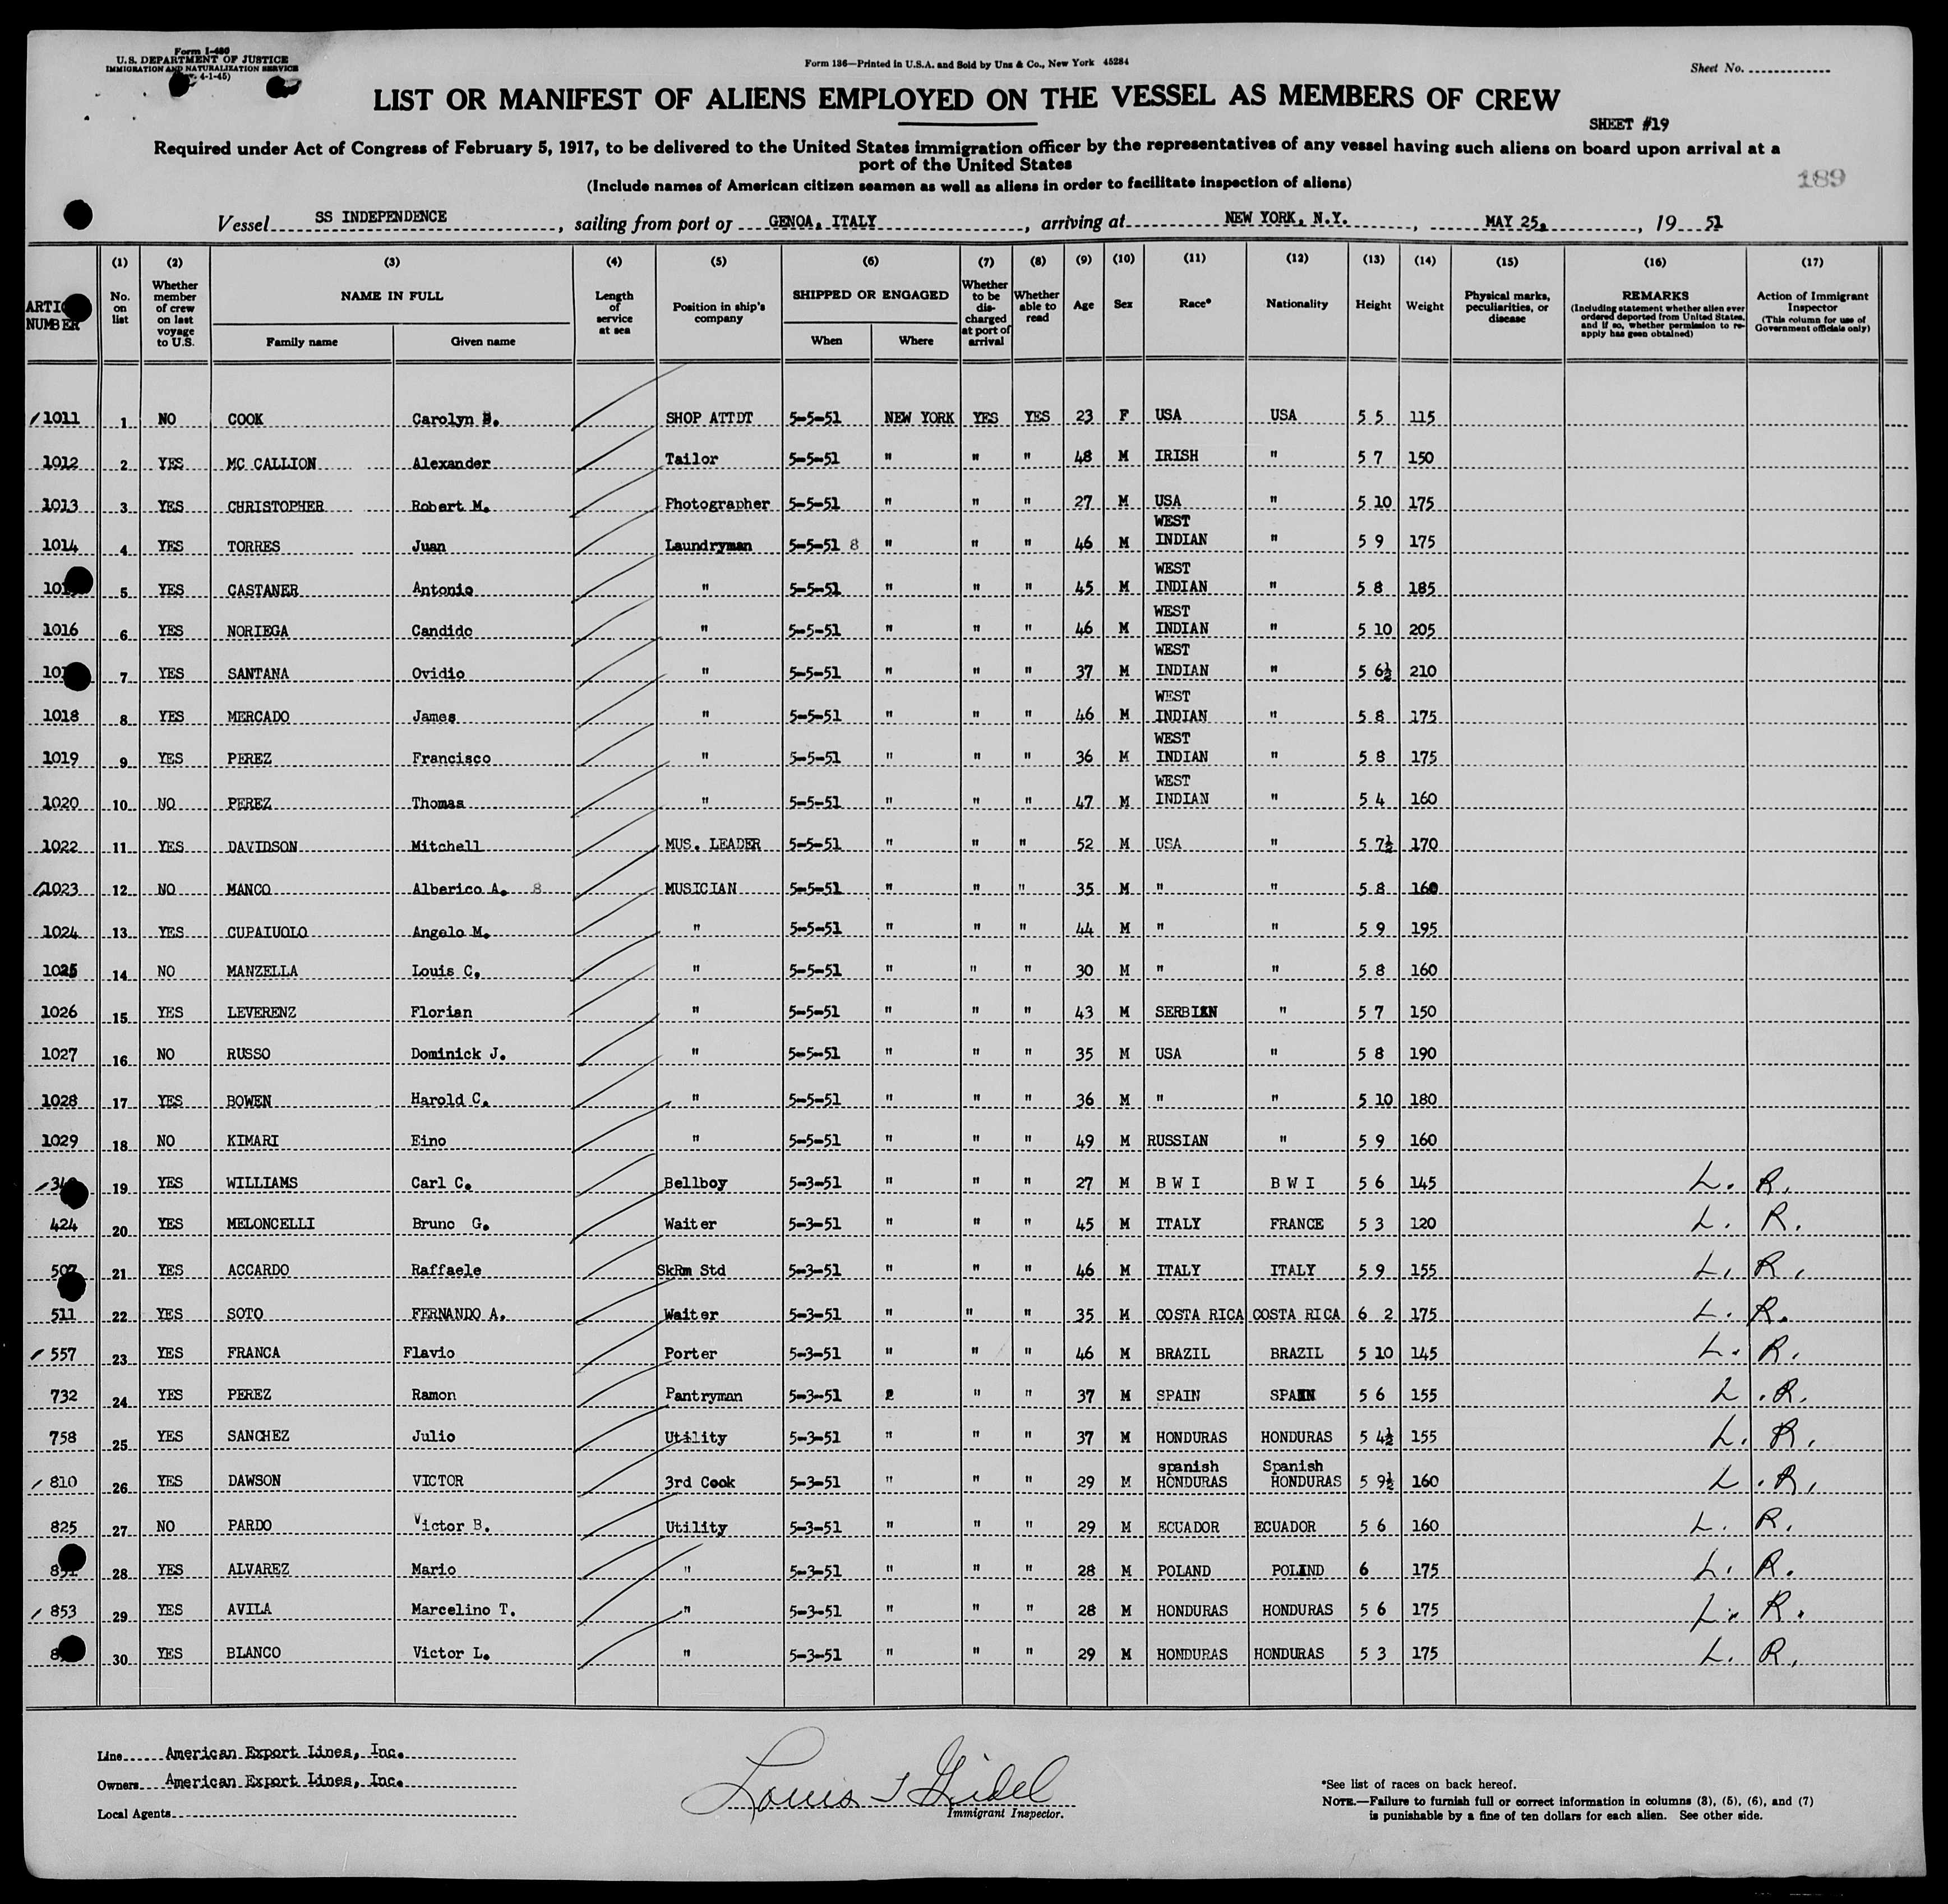 Form I-480
U.S. DEPARTMENT OF JUSTICE
IMMIGRATION AND NATURALIZATION SERVICE
4-1-45)
Form 136—Printed in U.S.A. and Sold by Unz & Co., New York 45284
Sheet No.
LIST OR MANIFEST OF ALIENS EMPLOYED ON THE VESSEL AS MEMBERS OF CREW
SHEET #19
Required under Act of Congress of February 5, 1917, to be delivered to the United States immigration officer by the representatives of any vessel having such aliens on board upon arrival at a
port of the United States
(Include names of American citizen seamen as well as aliens in order to facilitate inspection of aliens)
189
Vessel SS INDEPENDENCE, sailing from port of GENOA, ITALY, arriving at NEW YORK, N.Y., MAY 25, 19 51
(1) (2) (3) (4) (5) (6) (7) (8) (9) (10) (11) (12) (13) (14) (15) (16) (17)
NUMBER No. on list Whether member of crew on last voyage to U.S. NAME IN FULL Family name Given name Length of service at sea Position in ship's company SHIPPED OR ENGAGED When Where Whether to be discharged at port of arrival Whether able to read Age Sex Race* Nationality Height Weight Physical marks, peculiarities, or disease REMARKS (Including statement whether alien ever ordered deported from United States, and if so, whether permission to re-apply has geen obtained) Action of Immigrant Inspector (This column for use of Government officials only)
1011 1 NO COOK Carolyn B. SHOP ATTDT 5-5-51 NEW YORK YES YES 23 F USA USA 5 5 115
1012 2 YES MC CALLION Alexander Tailor 5-5-51 " " " 48 M IRISH " 5 7 150
1013 3 YES CHRISTOPHER Robert M. Photographer 5-5-51 " " " 27 M USA " 5 10 175
1014 4 YES TORRES Juan Laundryman 5-5-51 8 " " " 46 M WEST INDIAN " 5 9 175
5 YES CASTANER Antonio " 5-5-51 " " " 45 M WEST INDIAN " 5 8 185
1016 6 YES NORIEGA Candido " 5-5-51 " " " 46 M WEST INDIAN " 5 10 205
7 YES SANTANA Ovidio " 5-5-51 " " " 37 M WEST INDIAN " 5 6½ 210
1018 8 YES MERCADO James " 5-5-51 " " " 46 M WEST INDIAN " 5 8 175
1019 9 YES PEREZ Francisco " 5-5-51 " " " 36 M WEST INDIAN " 5 8 175
1020 10 NO PEREZ Thomas " 5-5-51 " " " 47 M WEST INDIAN " 5 4 160
1022 11 YES DAVIDSON Mitchell MUS. LEADER 5-5-51 " " " 52 M USA " 5 7½ 170
1023 12 NO MANCO Alberico A. 8 MUSICIAN 5-5-51 " " " 35 M " " 5 8 160
1024 13 YES CUPAIUOLO Angelo M. " 5-5-51 " " " 44 M " " 5 9 195
1025 14 NO MANZELLA Louis C. " 5-5-51 " " " 30 M " " 5 8 160
1026 15 YES LEVERENZ Florian " 5-5-51 " " " 43 M SERBIAN " 5 7 150
1027 16 NO RUSSO Dominick J. " 5-5-51 " " " 35 M USA " 5 8 190
1028 17 YES BOWEN Harold C. " 5-5-51 " " " 36 M " " 5 10 180
1029 18 NO KIMARI Eino " 5-5-51 " " " 49 M RUSSIAN " 5 9 160
19 YES WILLIAMS Carl C. Bellboy 5-3-51 " " " 27 M B W I B W I 5 6 145 L. R.
424 20 YES MELONCELLI Bruno G. Waiter 5-3-51 " " " 45 M ITALY FRANCE 5 3 120 L. R.
507 21 YES ACCARDO Raffaele SkRm Std 5-3-51 " " " 46 M ITALY ITALY 5 9 155 L. R.
511 22 YES SOTO FERNANDO A. Waiter 5-3-51 " " " 35 M COSTA RICA COSTA RICA 6 2 175 L. R.
557 23 YES FRANCA Flavio Porter 5-3-51 " " " 46 M BRAZIL BRAZIL 5 10 145 L. R.
732 24 YES PEREZ Ramon Pantryman 5-3-51 " " 37 M SPAIN SPAIN 5 6 155 L. R.
758 25 YES SANCHEZ Julio Utility 5-3-51 " " " 37 M HONDURAS HONDURAS 5 4½ 155 L. R.
810 26 YES DAWSON VICTOR 3rd Cook 5-3-51 " " " 29 M spanish HONDURAS Spanish HONDURAS 5 9½ 160 L. R.
825 27 NO PARDO Victor B. Utility 5-3-51 " " " 29 M ECUADOR ECUADOR 5 6 160 L. R.
28 YES ALVAREZ Mario " 5-3-51 " " " 28 M POLAND POLAND 6 175 L. R.
853 29 YES AVILA Marcelino T. " 5-3-51 " " " 28 M HONDURAS HONDURAS 5 6 175 L. R.
30 YES BLANCO Victor L. " 5-3-51 " " " 29 M HONDURAS HONDURAS 5 3 175 L. R.
Line American Export Lines, Inc.
Owners American Export Lines, Inc.
Local Agents
Louis
Immigrant Inspector.
*See list of races on back hereof.
NOTE.—Failure to furnish full or correct information in columns (3), (5), (6), and (7)
is punishable by a fine of ten dollars for each alien. See other side.